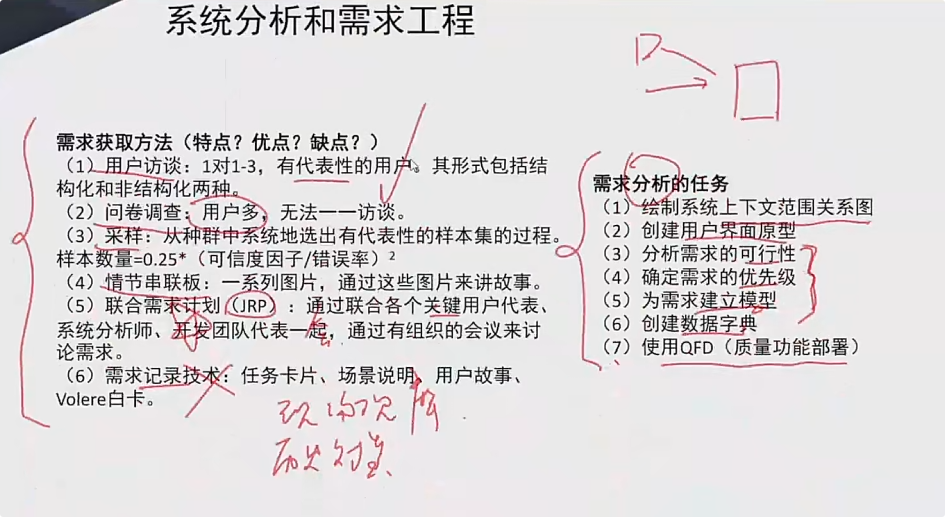 系统分析和需求工程
需求获取方法（特点？优点？缺点？）
（1）用户访谈：1对1-3，有代表性的用户。其形式包括结
构化和非结构化两种。
（2）问卷调查：用户多，无法一一访谈。
（3）采样：从种群中系统地选出有代表性的样本集的过程。
样本数量=0.25*（可信度因子/错误率）²
（4）情节串联板：一系列图片，通过这些图片来讲故事。
（5）联合需求计划（JRP）：通过联合各个关键用户代表、
系统分析师、开发团队代表一起，通过有组织的会议来讨
论需求。
（6）需求记录技术：任务卡片、场景说明、用户故事、
Volere白卡。
需求分析的任务
（1）绘制系统上下文范围关系图
（2）创建用户界面原型
（3）分析需求的可行性
（4）确定需求的优先级
（5）为需求建立模型
（6）创建数据字典
（7）使用QFD（质量功能部署）